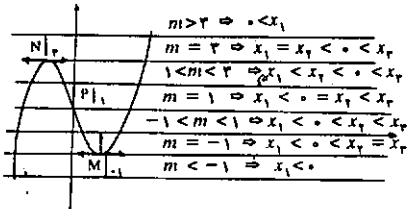 m > ۳ ⇒ ۰ < x۱
N | ۳
m = ۳ ⇒ x۱ = x۲ < ۰ < x۳
۱ < m < ۳ ⇒ x۱ < x۲ < ۰ < x۳
P | ۱
m = ۱ ⇒ x۱ < ۰ = x۲ < x۳
-۱ < m < ۱ ⇒ x۱ < ۰ < x۲ < x۳
m = -۱ ⇒ x۱ < ۰ < x۲ = x۳
M | -۱
m < -۱ ⇒ x۱ < ۰